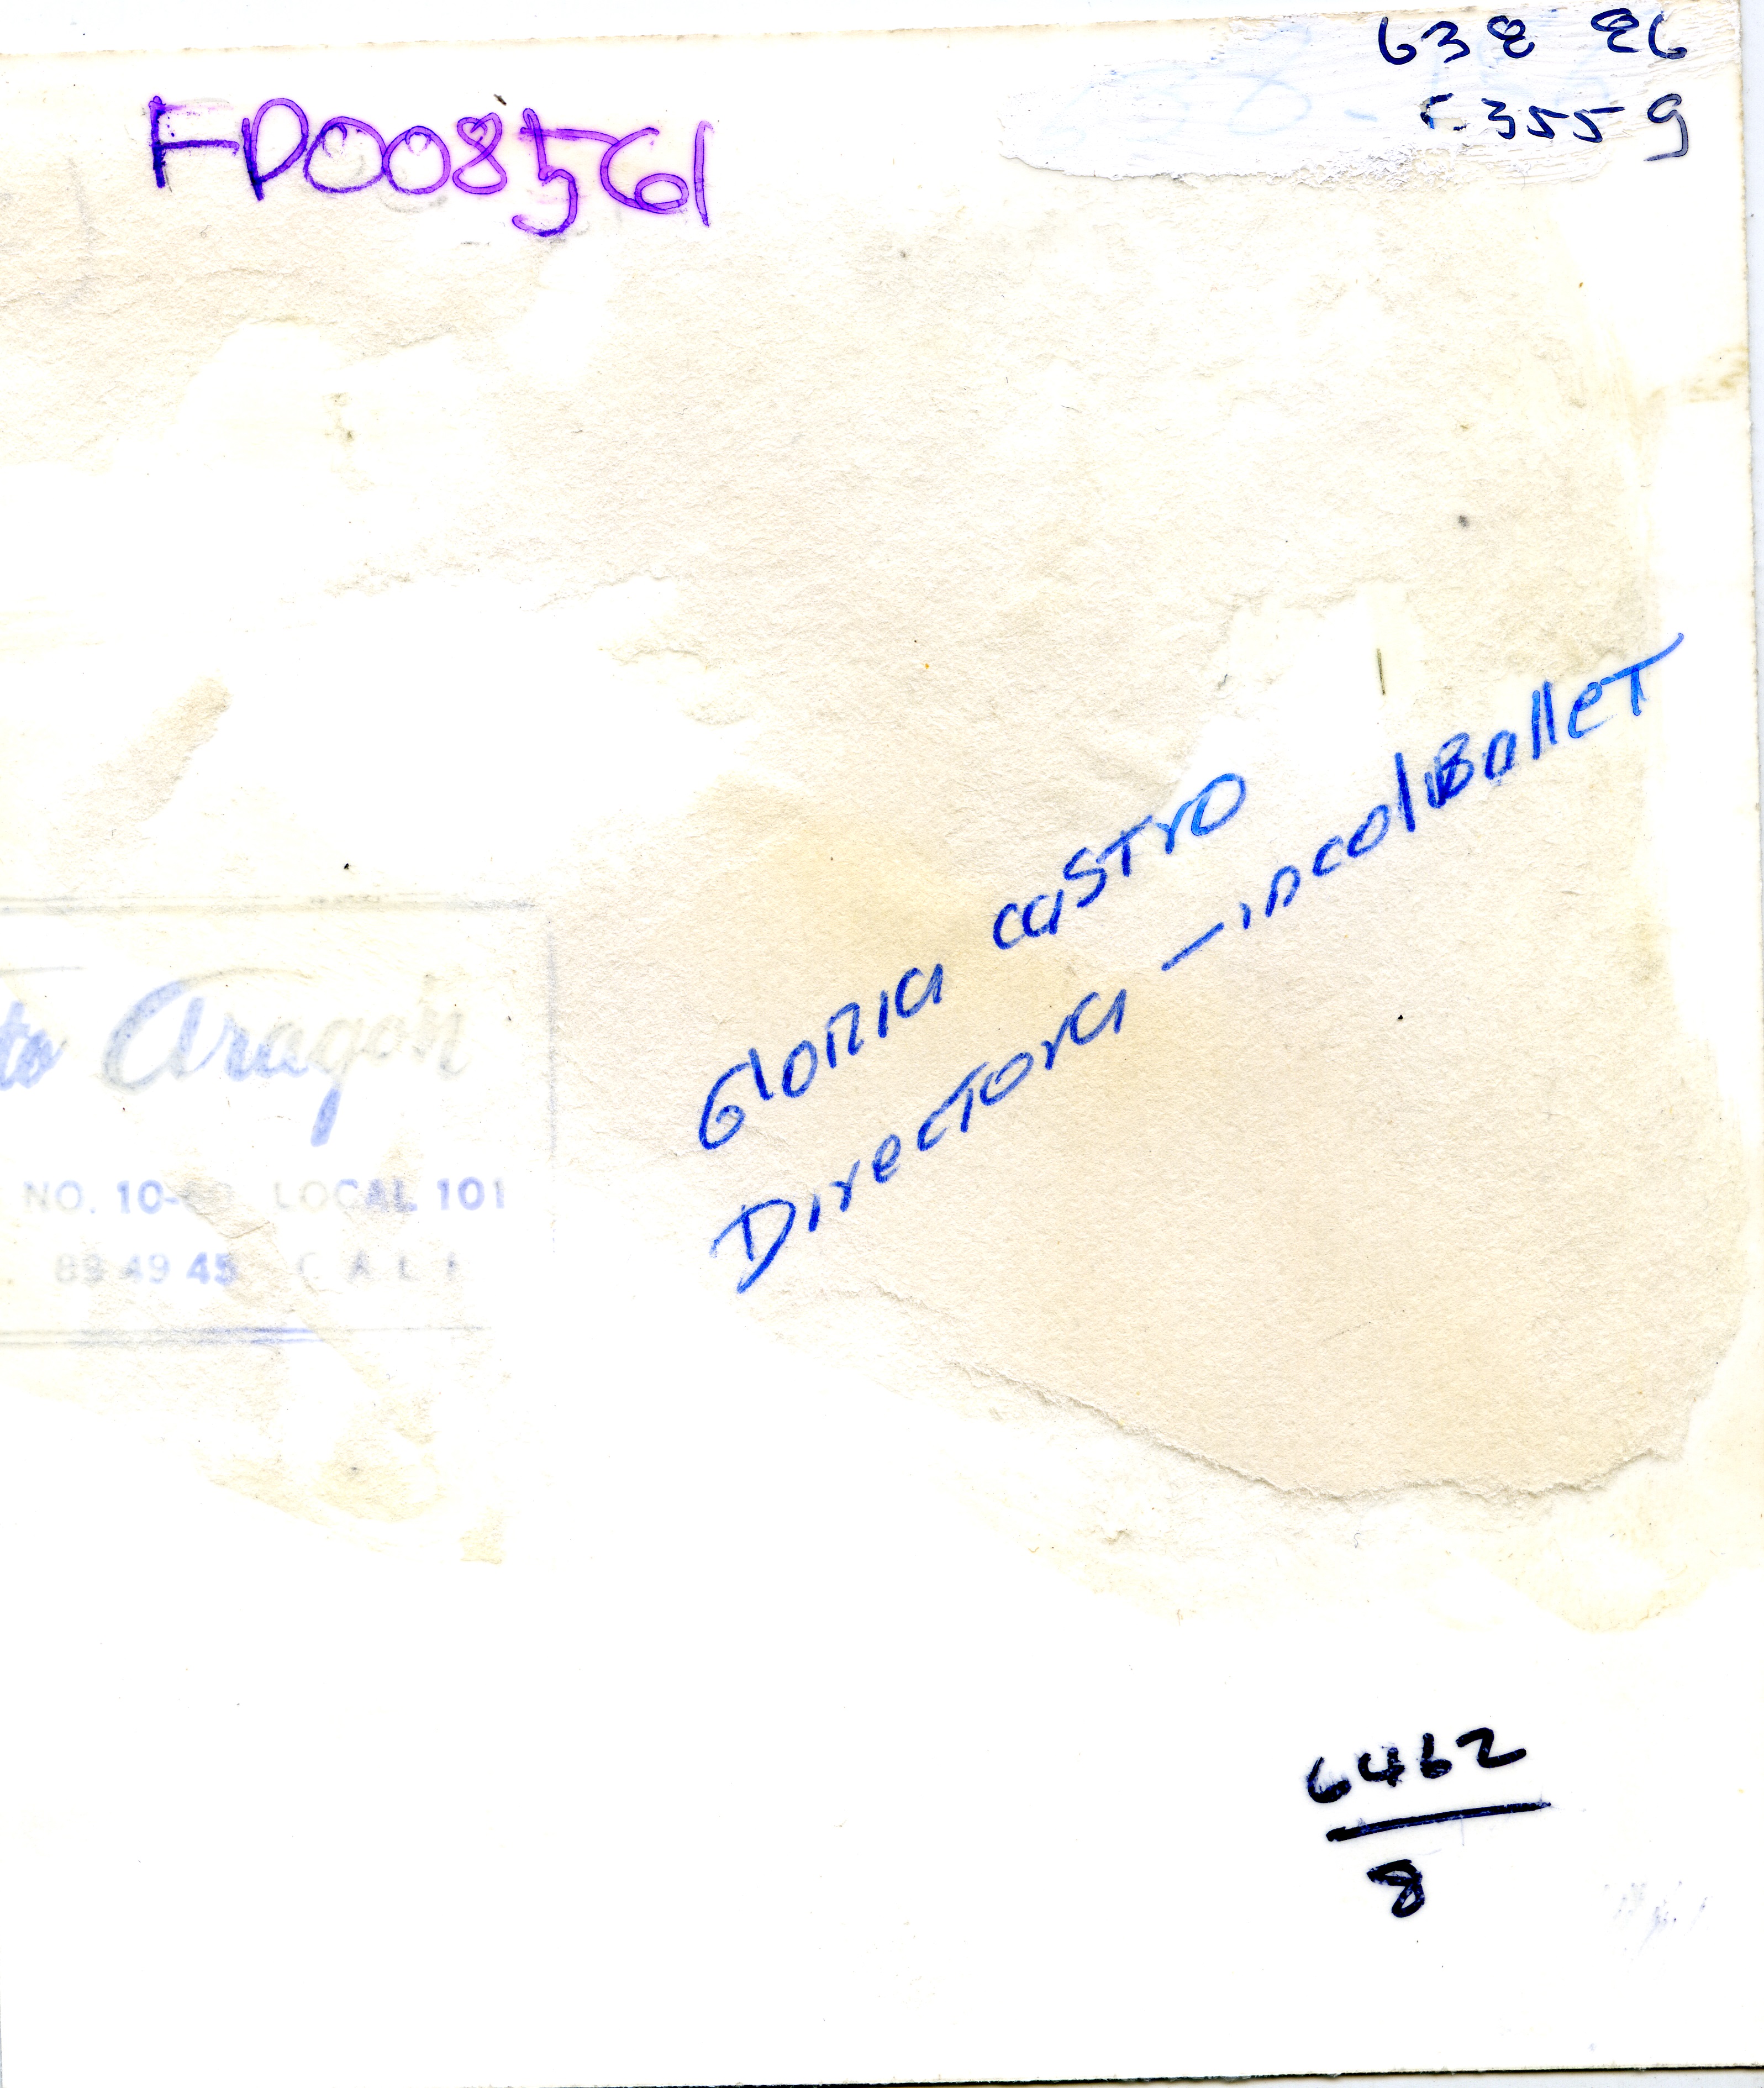 638 86
C355 g
FD008561
Gloria castro
Directora - incolBallet
to Aragon
NO. 10- LOCAL 101
89 49 45 CALI
6462
8